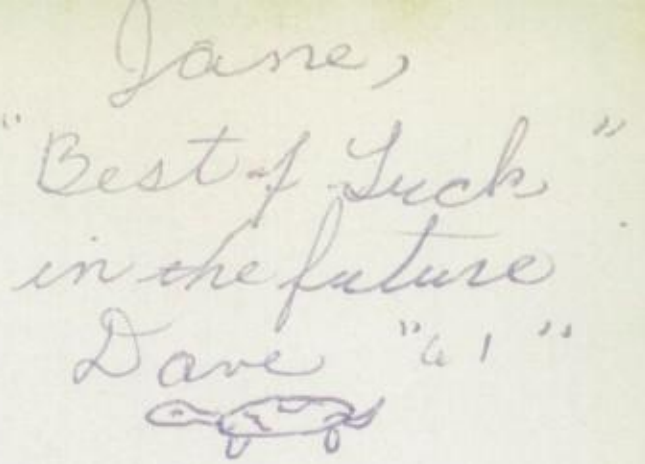 Jane,
"Best of Luck"
in the future
Dave "61"